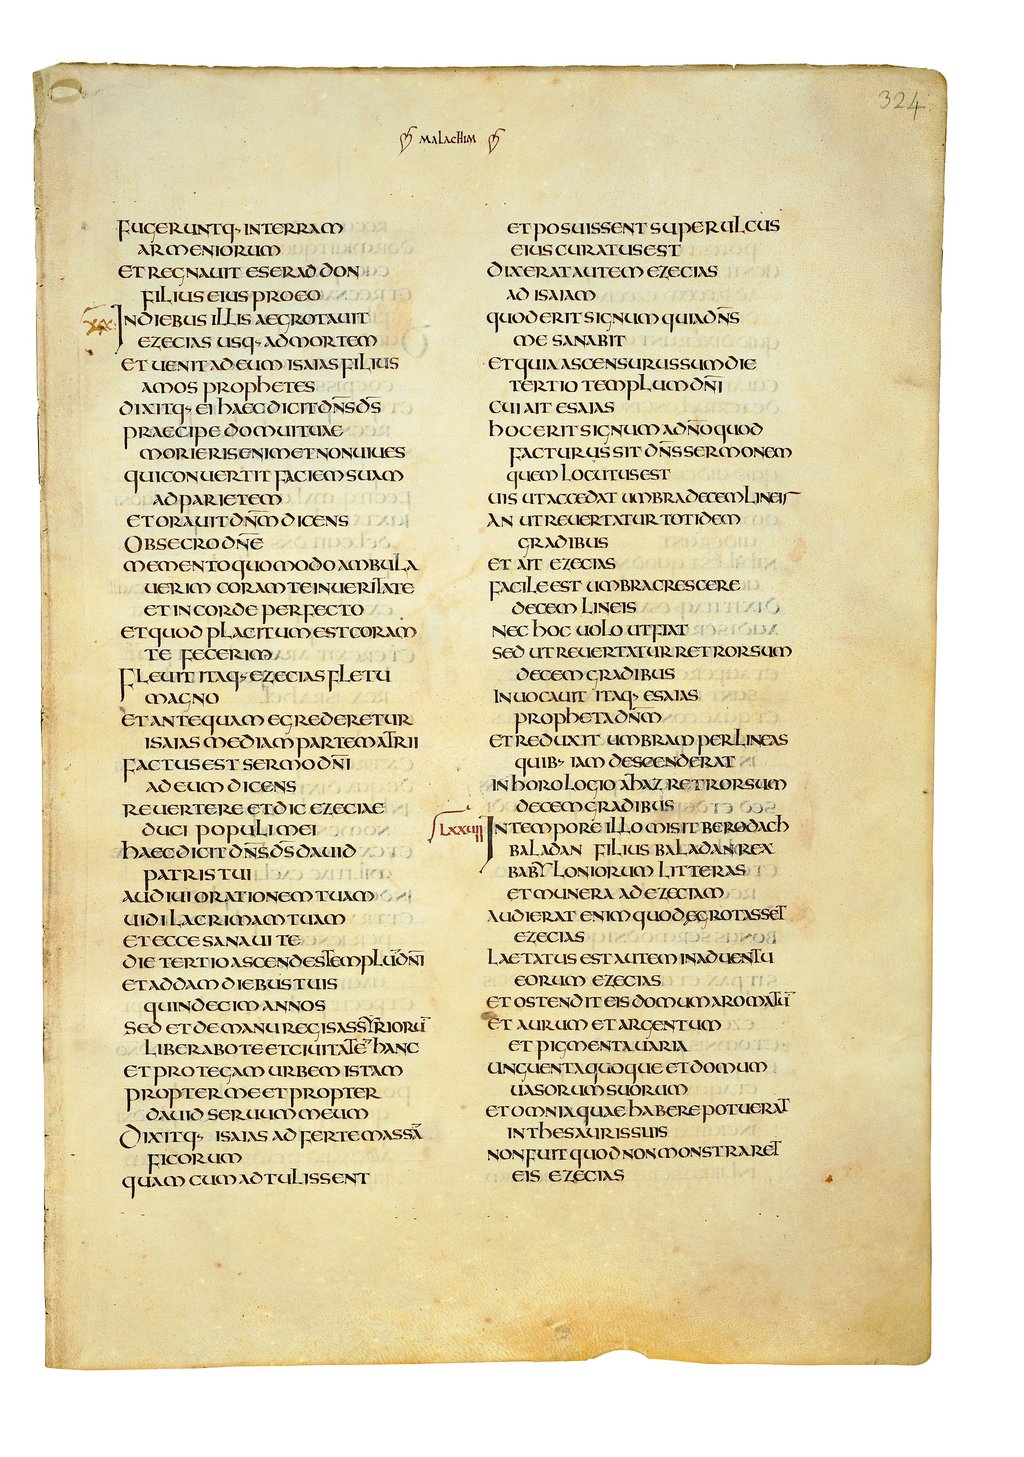 324
MALACHIM
FUGERUNTQ· IN TERRAM
ARMENIORUM
ET REGNAUIT ESERADDON
FILIUS EIUS PRO EO
XX
IN DIEBUS ILLIS AEGROTAUIT
EZECIAS USQ· AD MORTEM
ET UENIT AD EUM ISAIAS FILIUS
AMOS PROPHETES
DIXITQ· EI HAEC DICIT DN̄S D̄S
PRAECIPE DOMUI TUAE
MORIERIS ENIM ET NON UIUES
QUI CONUERTIT FACIEM SUAM
AD PARIETEM
ET ORAUIT DN̄M DICENS
OBSECRO DN̄E
MEMENTO QUOMODO AMBULA
UERIM CORAM TE IN UERITATE
ET IN CORDE PERFECTO
ET QUOD PLACITUM EST CORAM
TE FECERIM
FLEUIT ITAQ· EZECIAS FLETU
MAGNO
ET ANTEQUAM EGREDERETUR
ISAIAS MEDIAM PARTEM ATRII
FACTUS EST SERMO DN̄I
AD EUM DICENS
REUERTERE ET DIC EZECIAE
DUCI POPULI MEI
HAEC DICIT DN̄S D̄S DAUID
PATRIS TUI
AUDIUI ORATIONEM TUAM
UIDI LACRIMAM TUAM
ET ECCE SANAUI TE
DIE TERTIO ASCENDES TEMPLŪ DN̄I
ET ADDAM DIEBUS TUIS
QUINDECIM ANNOS
SED ET DE MANU REGIS ASSYRIORŪ
LIBERABO TE ET CIUITATĒ HANC
ET PROTEGAM URBEM ISTAM
PROPTER ME ET PROPTER
DAUID SERUUM MEUM
DIXITQ· ISAIAS ADFERTE MASSĀ
FICORUM
QUAM CUM ADTULISSENT
ET POSUISSENT SUPER ULCUS
EIUS CURATUS EST
DIXERAT AUTEM EZECIAS
AD ISAIAM
QUOD ERIT SIGNUM QUIA DN̄S
ME SANABIT
ET QUIA ASCENSURUS SUM DIE
TERTIO TEMPLUM DN̄I
CUI AIT ESAIAS
HOC ERIT SIGNUM A DN̄O QUOD
FACTURUS SIT DN̄S SERMONEM
QUEM LOCUTUS EST
UIS UT ACCEDAT UMBRA DECEM LINEIS
AN UT REUERTATUR TOTIDEM
GRADIBUS
ET AIT EZECIAS
FACILE EST UMBRA CRESCERE
DECEM LINEIS
NEC HOC UOLO UT FIAT
SED UT REUERTATUR RETRORSUM
DECEM GRADIBUS
INUOCAUIT ITAQ· ESAIAS
PROPHETA DN̄M
ET REDUXIT UMBRAM PER LINEAS
QUIB· IAM DESCENDERAT
IN HOROLOGIO AHAZ RETRORSUM
DECEM GRADIBUS
LXXUII
IN TEMPORE ILLO MISIT BERODACH
BALADAN FILIUS BALADAN REX
BABYLONIORUM LITTERAS
ET MUNERA AD EZECIAM
AUDIERAT ENIM QUOD EGROTASSET
EZECIAS
LAETATUS EST AUTEM IN ADUENTU
EORUM EZECIAS
ET OSTENDIT EIS DOMUM AROMATŪ
ET AURUM ET ARGENTUM
ET PIGMENTA UARIA
UNGUENTA QUOQUE ET DOMUM
UASORUM SUORUM
ET OMNIA QUAE HABERE POTUERAT
IN THESAURIS SUIS
NON FUIT QUOD NON MONSTRARET
EIS EZECIAS